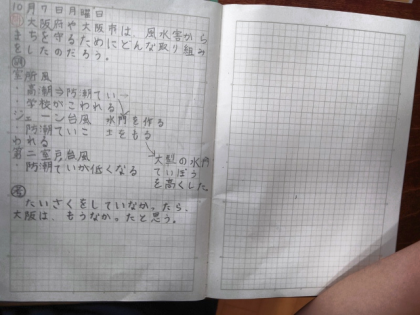 10月7日月曜日
大阪府や大阪市は、風水害から
まちを守るためにどんな取り組み
をしたのだろう。
室戸台風
・高潮 防潮てい
・学校がこわれる
ジェーン台風 水門を作る
・防潮ていこ 土をもる
われる
第二室戸台風 大型の水門
・防潮ていが低くなる ていぼう
を高くした
たいさくをしていなかったら、
大阪は、もうなかったと思う。